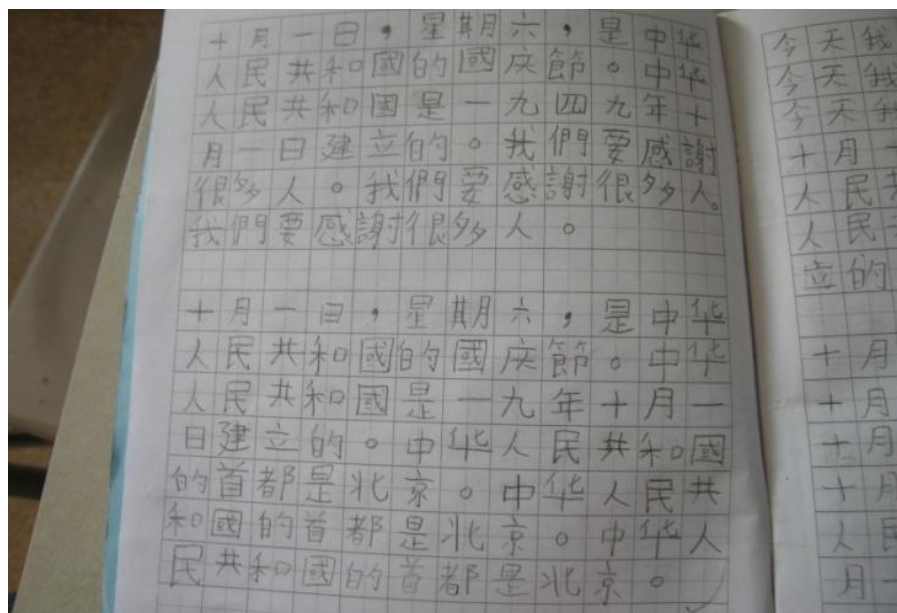 十月一日，星期六，是中华
人民共和國的國庆節。中华
人民共和國是一九四九年十
月一日建立的。我們要感謝
很多人。我們要感謝很多人。
我們要感謝很多人。
十月一日，星期六，是中华
人民共和國的國庆節。中华
人民共和國是一九年十月一
日建立的。中华人民共和國
的首都是北京。中华人民共
和國的首都是北京。中华人
民共和國的首都是北京。
今天我
今天我
今天我
十月一
人民共
人民共
立的
十月
十月
十月
十月
人民
月一